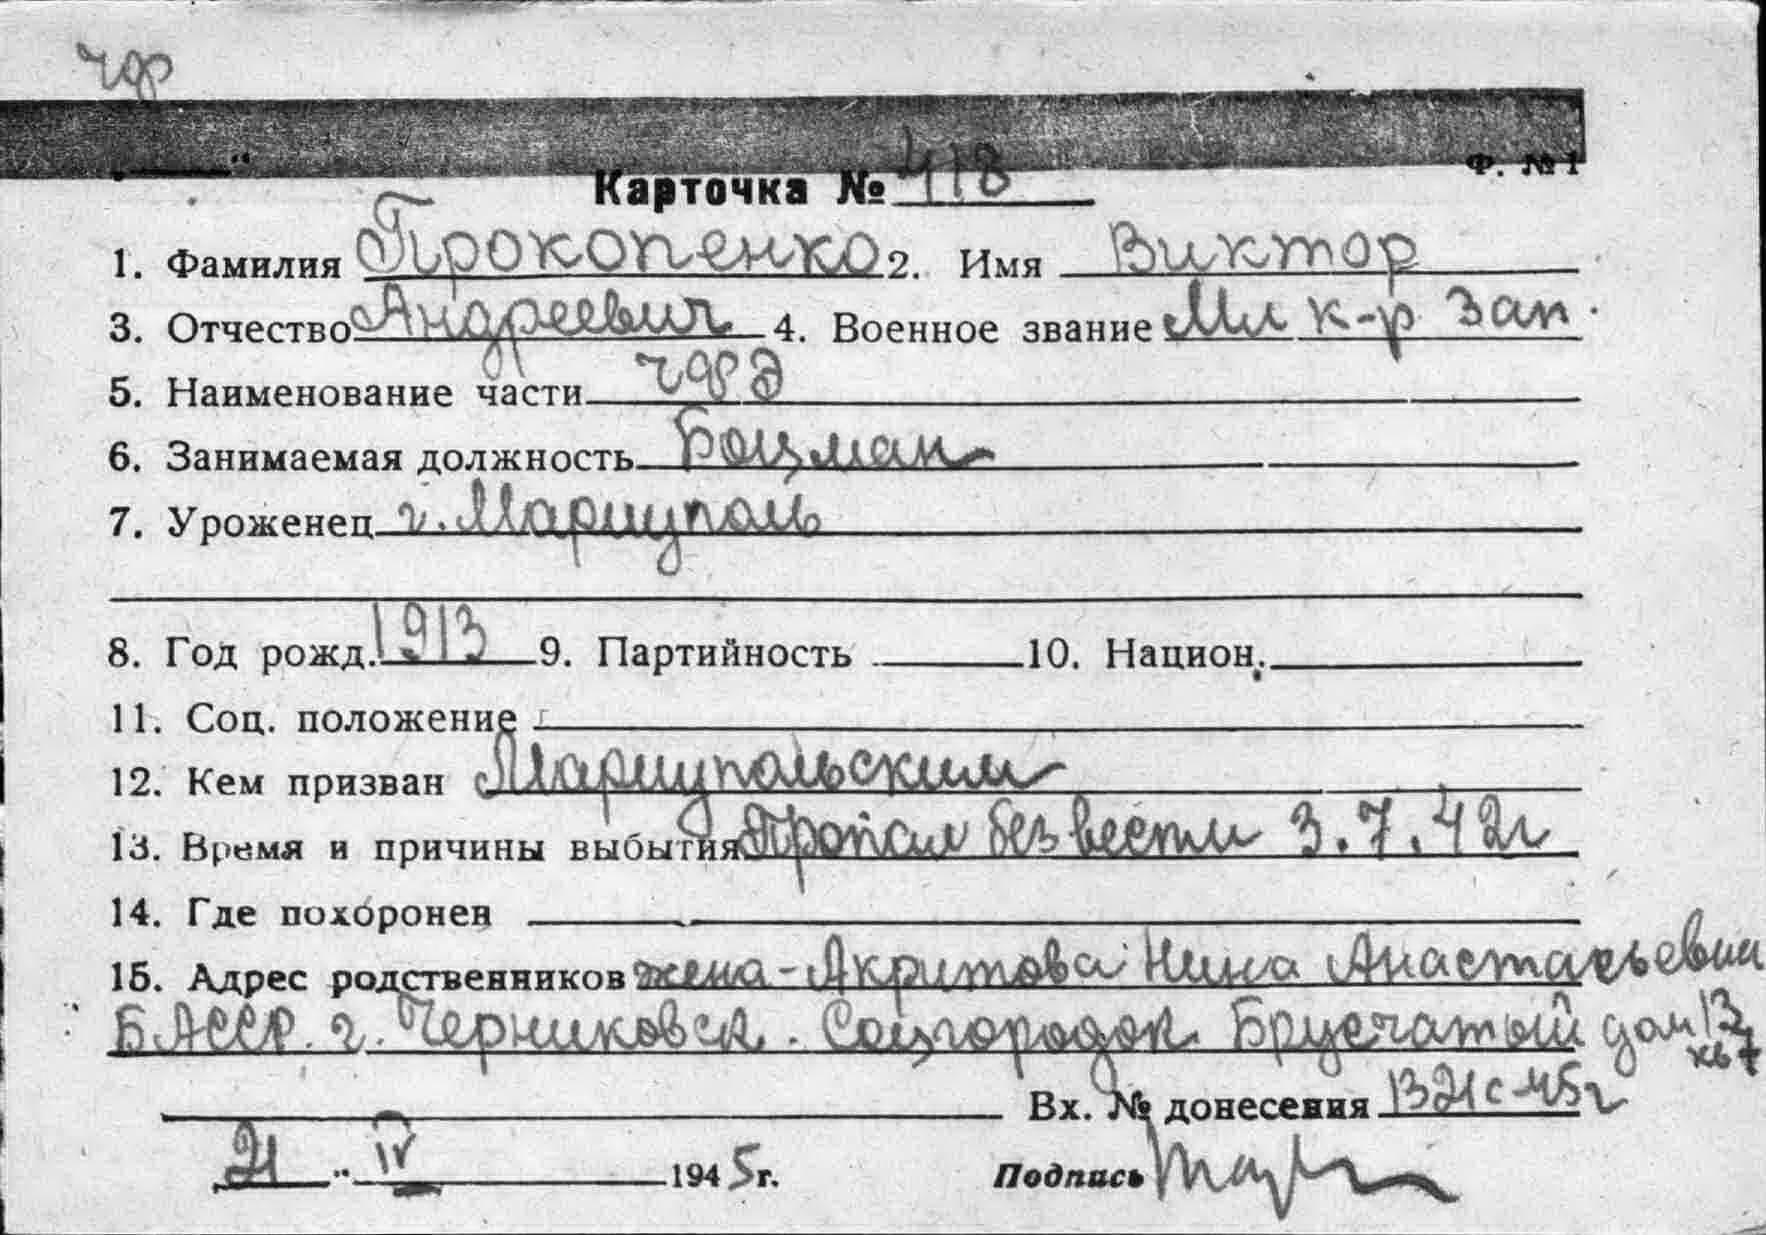 чф
Ф. № 1
Карточка № 418
1. Фамилия Прокопенко 2. Имя Виктор
3. Отчество Андреевич 4. Военное звание Мл к-р зап.
5. Наименование части
6. Занимаемая должность Боцман
7. Уроженец г. Мариуполь
8. Год рожд. 1913 9. Партийность 10. Национ.
11. Соц. положение
12. Кем призван Мариупольским
13. Время и причины выбытия Пропал без вести 3.7.42г
14. Где похоронен
15. Адрес родственников жена - Акритова Нина Анастасьевна
БАССР. г. Черниковск. Соцгородок. Брусчатый дом 13
кв 7
Вх. № донесения 1321с-45г
21 " IV 1945г.
Подпись